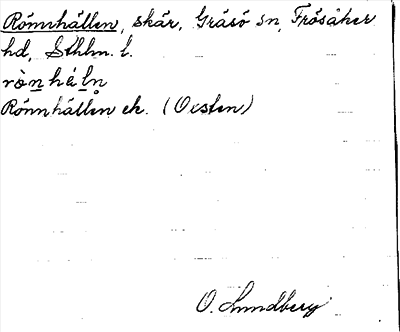 Rönnhällen, skär, Gräsö sn, Frösåker
hd, Sthlm. l.
rò̀n hä́ ln̥
Rönnhällen ek. (Oesten)
O. Lundberg